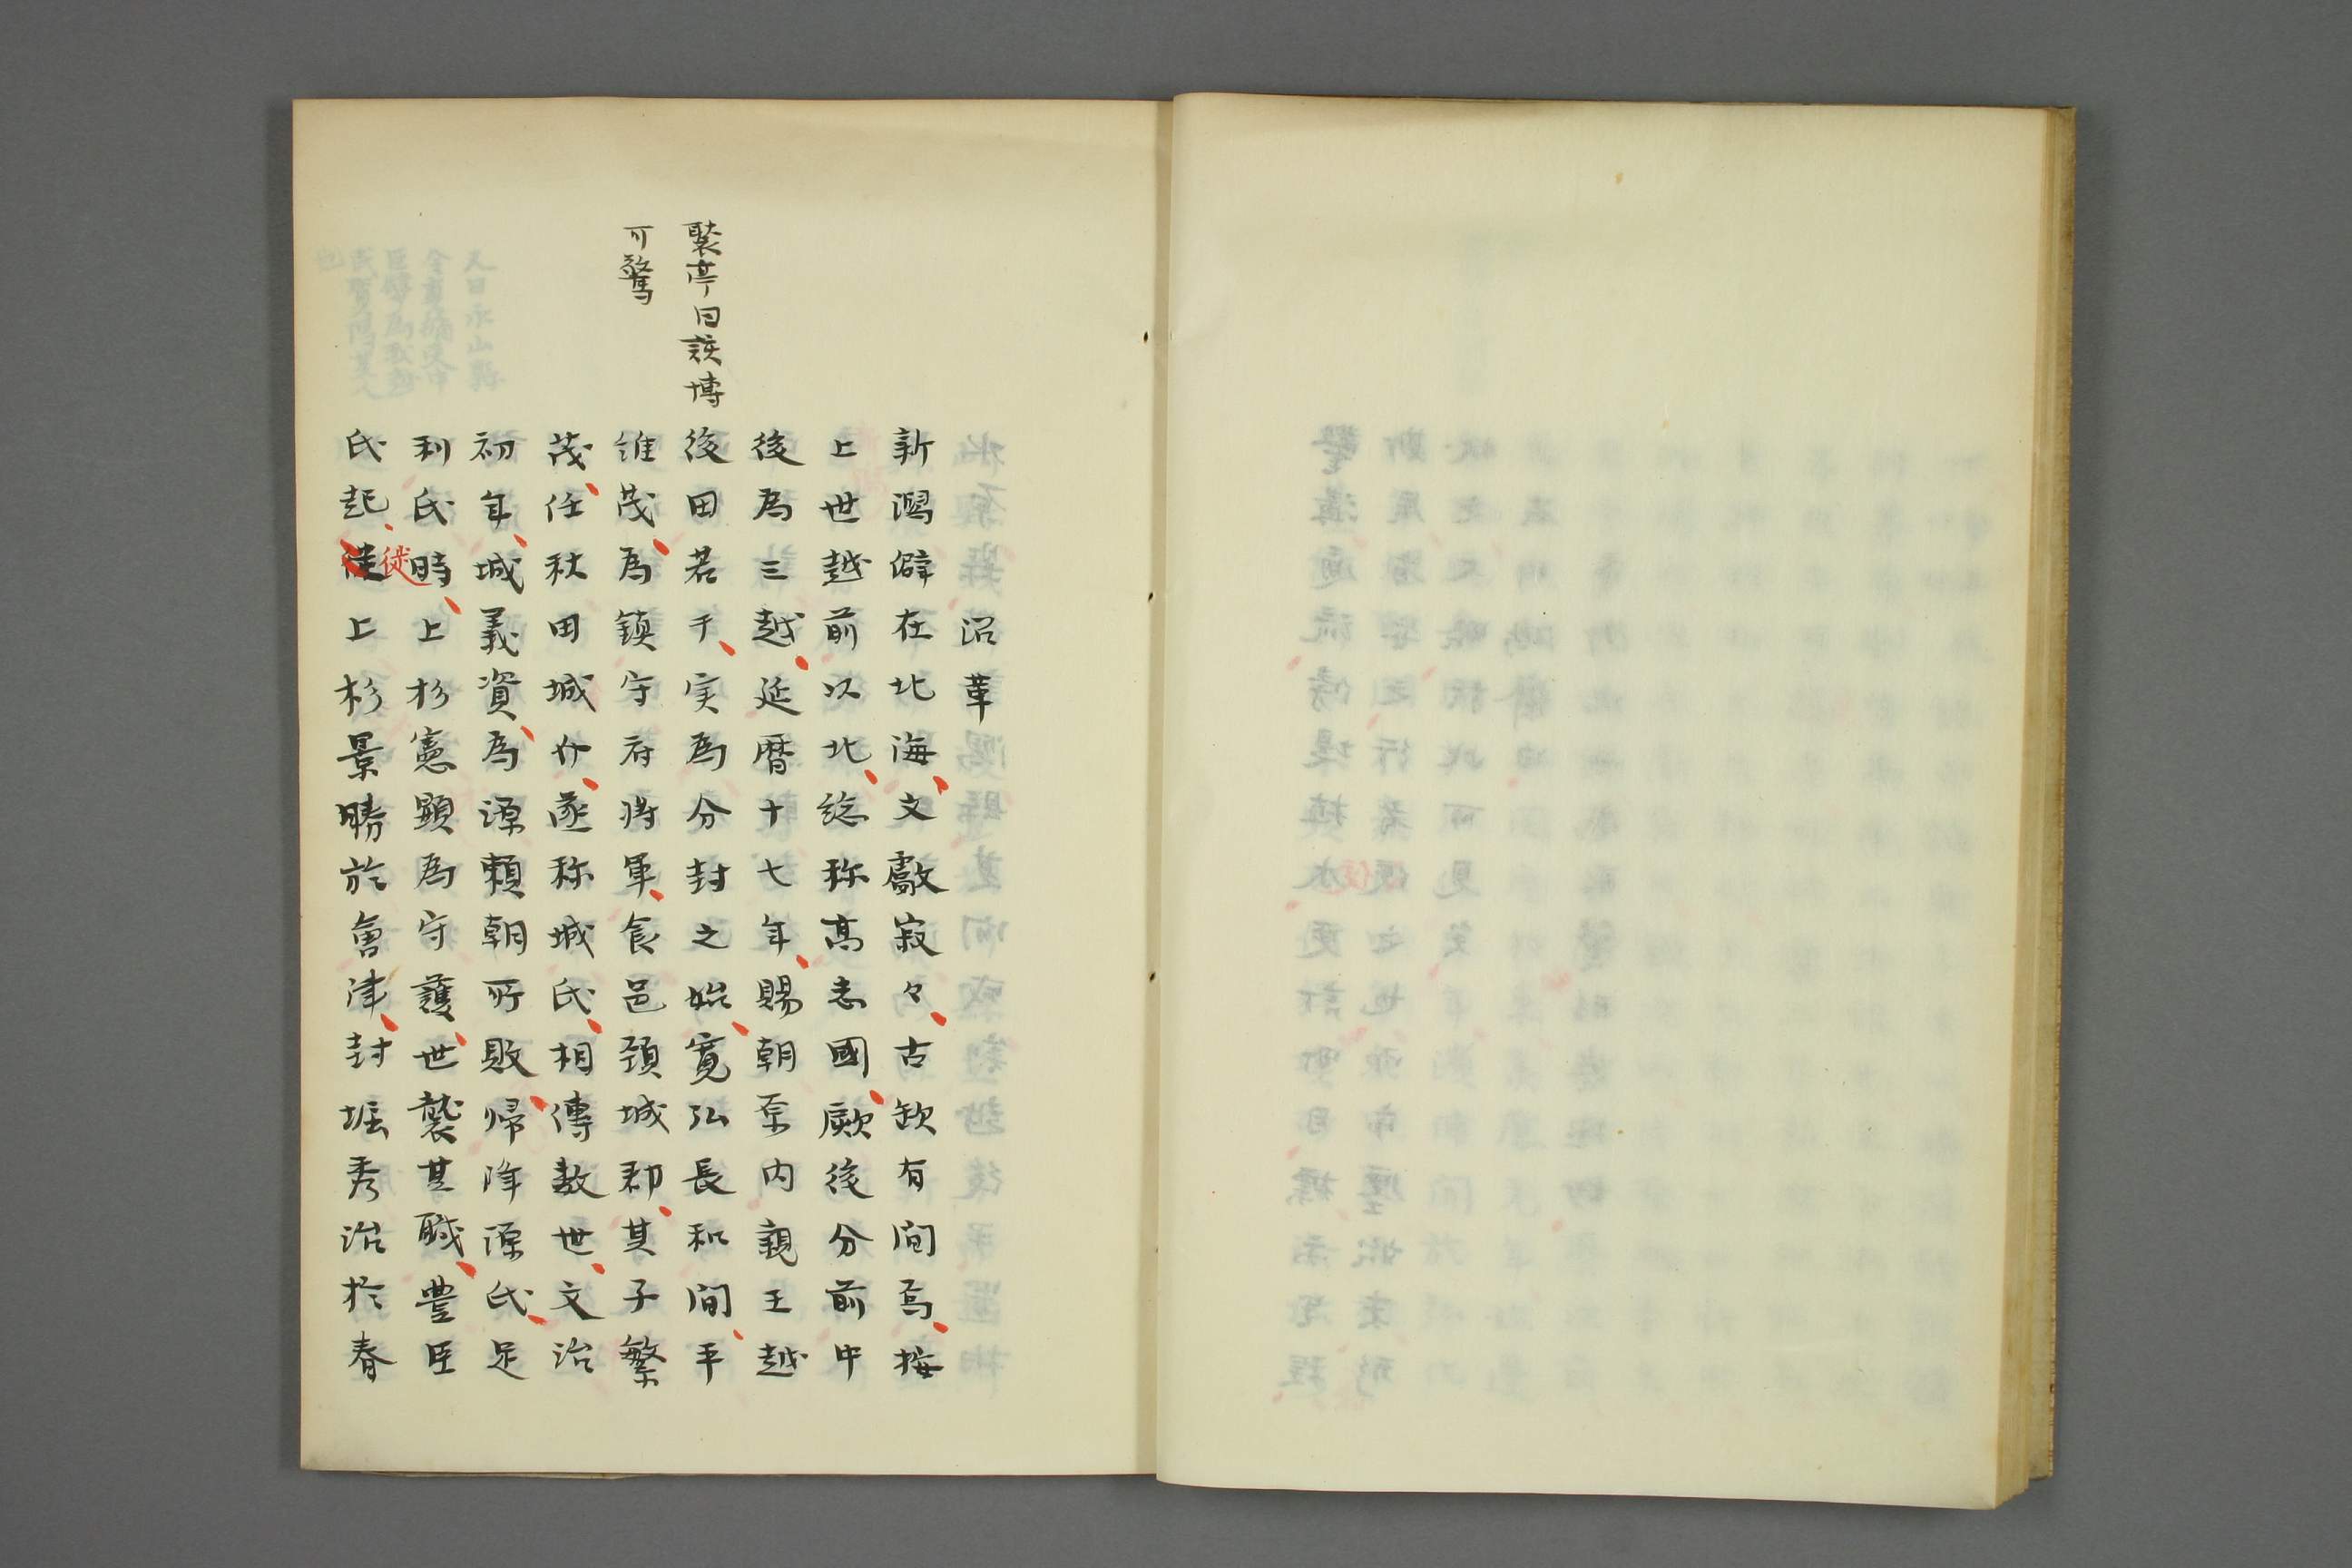 裴亭曰該博
可驚
沿革
新潟僻在北海文献寂々古欽有間焉按
上世越前以北総称高志國厥後分前中
後為三越延暦十七年賜朝原内親王越
後田若干実為分封之始寛弘長和間平
維茂為鎮守府将軍食邑頚城郡其子繁
茂任秋田城介遂称城氏相傳数世文治
初年城義資為源頼朝所敗帰降源氏足
利氏時上杉憲顕為守護世襲其職豊臣
氏起徙上杉景勝於會津封堀秀治於春